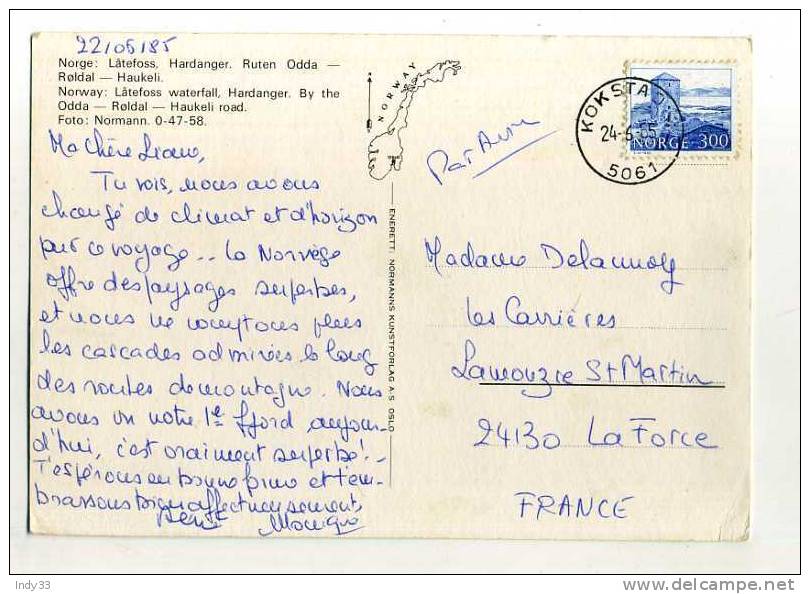 22/05/85
Norge: Låtefoss, Hardanger. Ruten Odda —
Røldal — Haukeli.
Norway: Låtefoss waterfall, Hardanger. By the
Odda — Røldal — Haukeli road.
Foto: Normann. 0-47-58.
Ma Chère
Tu vois, nous avons
changé de climat et d'horizon
par ce voyage.. la Norvège
offre des paysages superbes,
et nous ne comptons plus
les cascades admirées le long
des routes de montagne. Nous
avons vu notre 1er fjord aujour-
d'hui, c'est vraiment superbe! -
T'espérons en bonne forme et t'em-
brassons bien affectueusement,
Monique
NORWAY
ENERETT: NORMANNS KUNSTFORLAG A.S. OSLO
Par Avion
KOKSTAD
24-5-85
5061
NORGE 300
Madame Delaunay
les Carrières
Lamonzie St Martin
24130 La Force
FRANCE
Indy33
delcampe.net